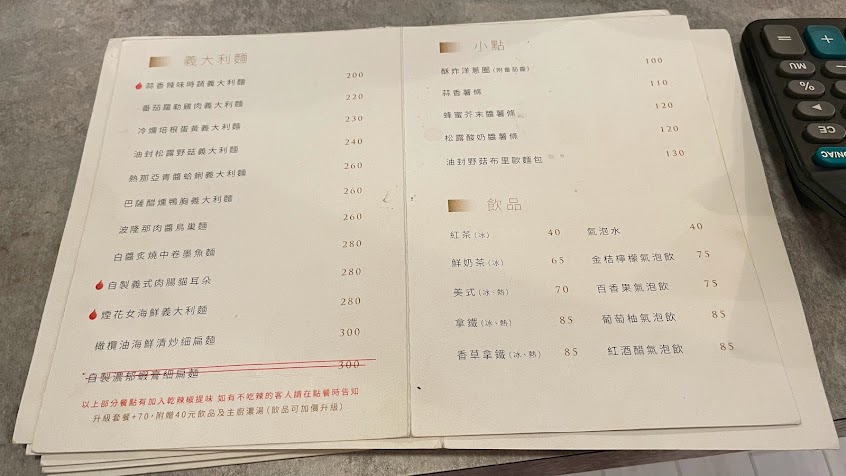 義大利麵
蒜香辣味時蔬義大利麵 200
番茄羅勒雞肉義大利麵 220
冷燻培根蛋黃義大利麵 230
油封松露野菇義大利麵 240
熱那亞青醬蛤蜊義大利麵 260
巴薩醋燻鴨胸義大利麵 260
波隆那肉醬鳥巢麵 260
白醬炙燒中卷墨魚麵 280
自製義式肉腸貓耳朵 280
煙花女海鮮義大利麵 280
橄欖油海鮮清炒細扁麵 300
*自製濃郁蝦膏細扁麵 300
以上部分餐點有加入乾辣椒提味 如有不吃辣的客人請在點餐時告知
升級套餐+70,附贈40元飲品及主廚濃湯(飲品可加價升級)
小點
酥炸洋蔥圈(附番茄醬) 100
蒜香薯條 110
蜂蜜芥末醬薯條 120
松露酸奶醬薯條 120
油封野菇布里歐麵包 130
飲品
紅茶(冰) 40 氣泡水 40
鮮奶茶(冰) 65 金桔檸檬氣泡飲 75
美式(冰、熱) 70 百香果氣泡飲 75
拿鐵(冰、熱) 85 葡萄柚氣泡飲 85
香草拿鐵(冰、熱) 85 紅酒醋氣泡飲 85
=
+
MU
%
CE
ON/AC